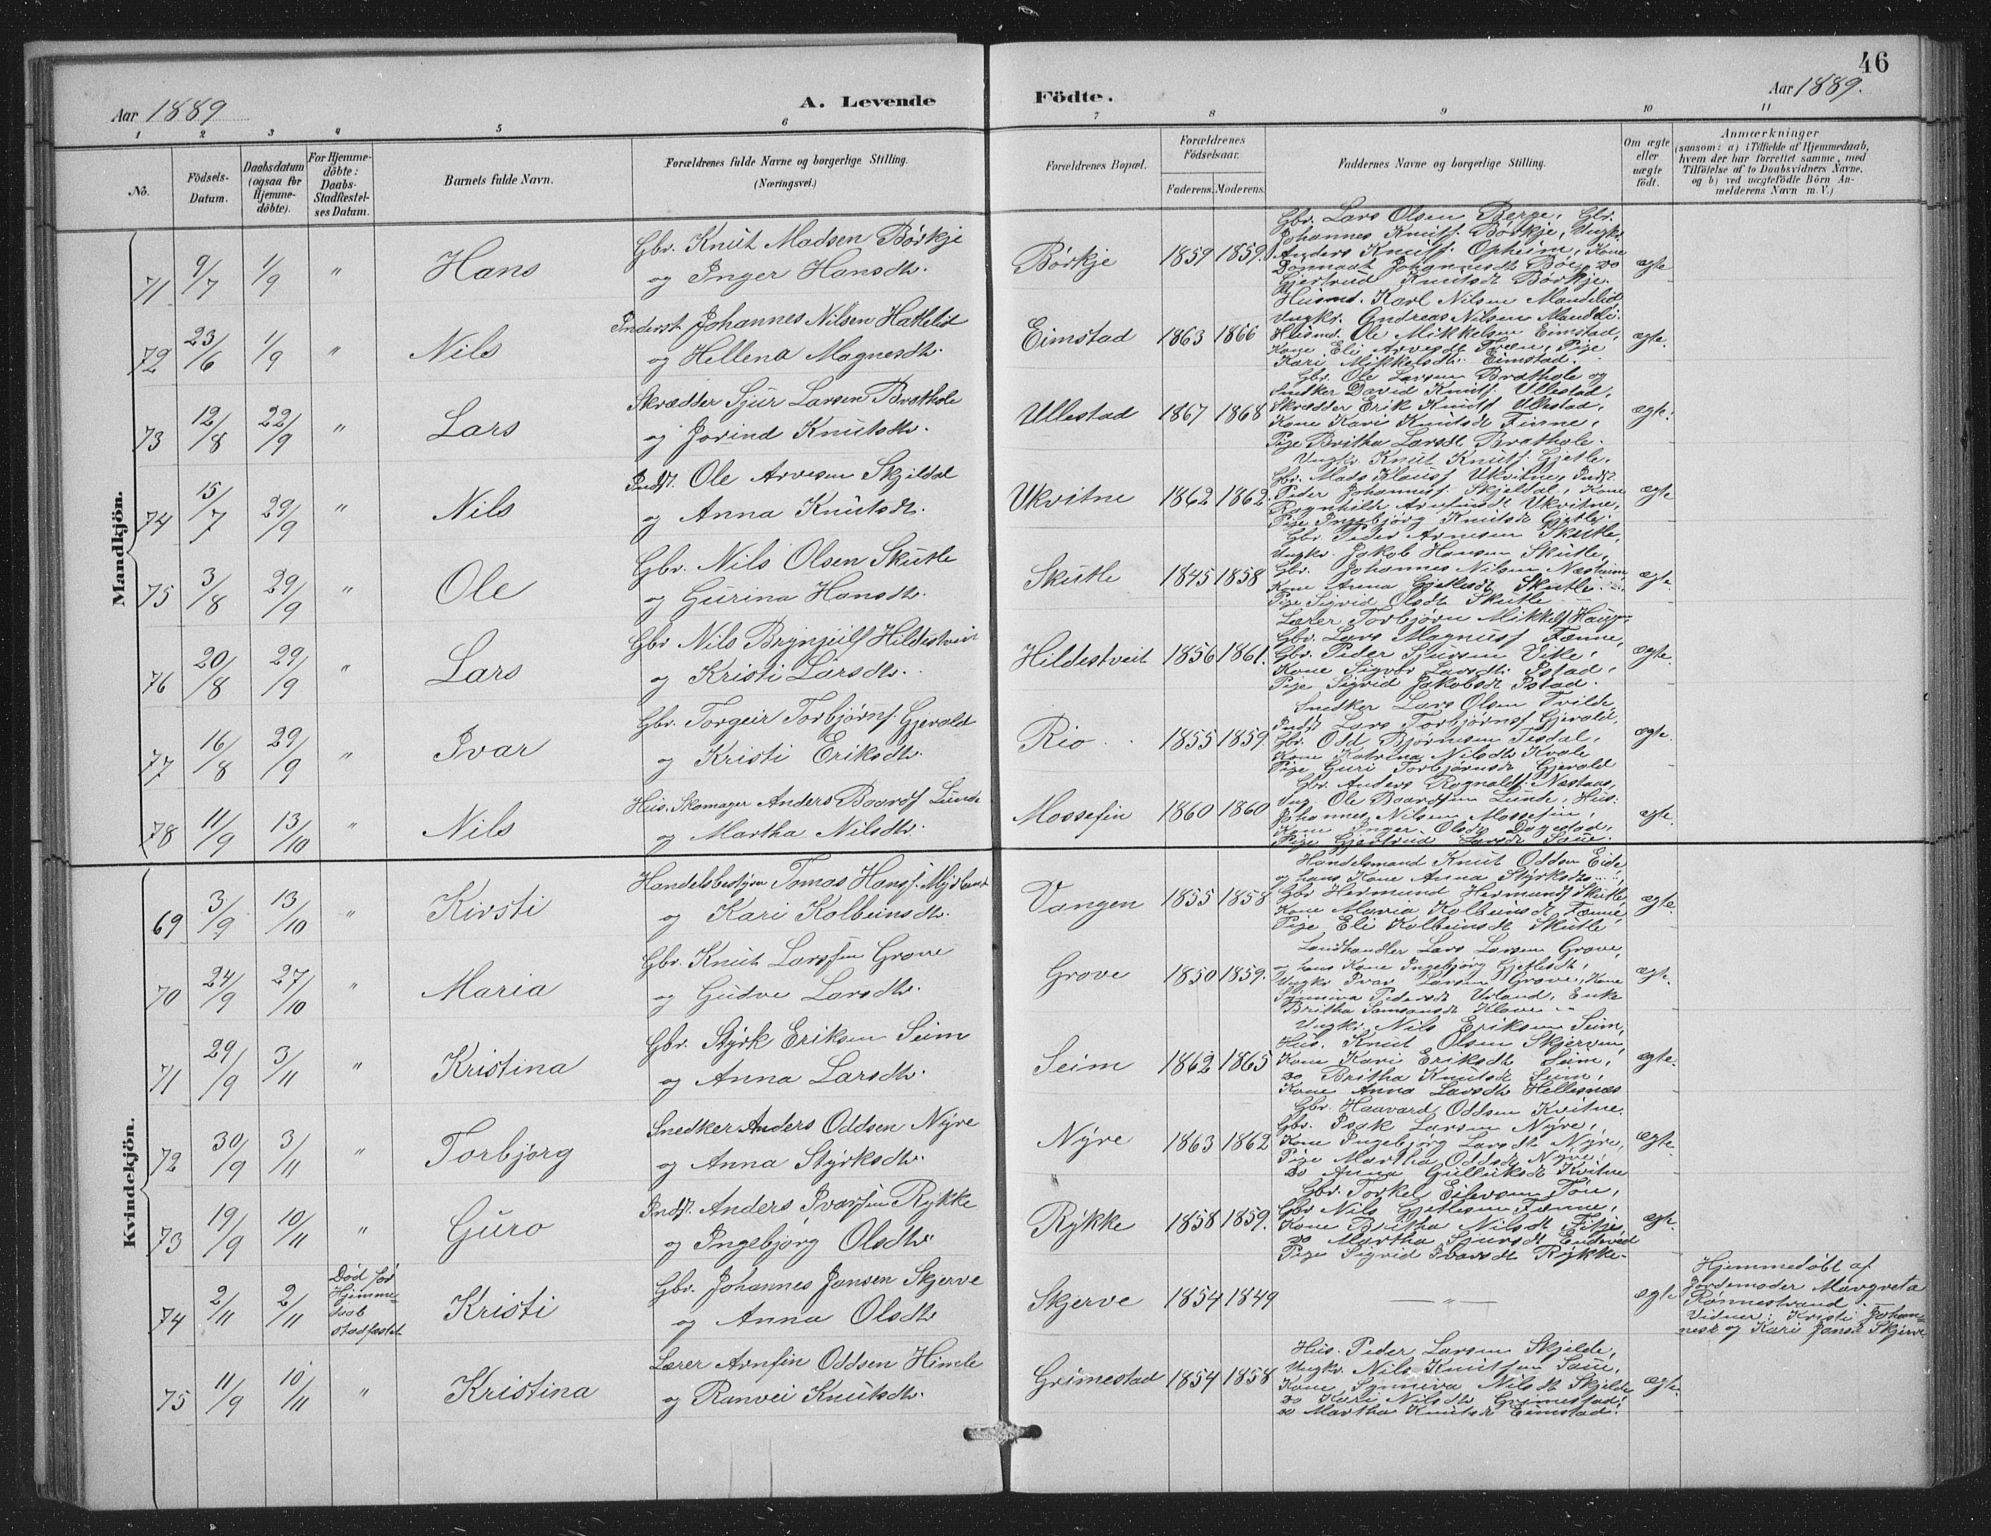 46
Aar 1889
A. Levende
Födte.
Aar 1889.
1 2 3 4 5 6 7 8 9 10 11
No.
Födsels-Datum.
Daabsdatum (ogsaa for Hjemmedöbte).
For Hjemmedöbte: Daabs-Stadfæstelses Datum.
Barnets fulde Navn.
Forældrenes fulde Navne og borgerlige Stilling. (Næringsvei.)
Forældrenes Bopæl.
Forældrenes Födselsaar.
Faderens. Moderens.
Faddernes Navne og borgerlige Stilling.
Om ægte eller uægte födt.
Anmærkninger
(saasom: a) i Tilfælde af Hjemmedaab,
hvem der har forrettet samme, med
Tilföielse af to Daabsvidners Navne,
og b) ved uægtefödte Börn An-
melderens Navn m. V.)
Mandkjön.
71 9/7 1/9 " Hans
Gbr. Knut Madsen Börkje
og Inger Hansdtr.
Börkje 1859 1859. ægte
Gbr. Lars Olsen Berge, Gbr.
Johannes Knutss. Börkje, Ungk.
Anders Knutss. Opheim, Kone
Gjertrud Knutsdt Börkje.
72 23/6 1/9 " Nils
Inderst Johannes Nilsen Hattelid
og Hellena Magnesdtr.
Eimstad 1863 1866 ægte.
Husmd. Karl Nilsen Mandelid
Ungkr. Andreas Nilsen Mandelid
Husmd Ole Mikkelsen Eimstad,
Kari Mikkelsdt. Eimstad.
73 12/8 22/9 " Lars
Skrædder Sjur Larsen Brathole
og Jorind Knutsdtr.
Ullestad 1867 1868 ægte.
Gbr. Ole Larsen Brathole og
Snedker David Knutss Ullestad,
Skrædder Erik Knutss Ullestad,
Kone Kari Knutsdt Finne,
Pige Britha Larsdt Brathole.
74 15/7 29/9 " Nils
Indst. Ole Arvesen Skjeldal
og Anna Knutsdtr.
Ukvitne 1862 1862. ægte
Ungkr Knut Knutss. Gjetle.
Gbr. Mads Klauss Ukvitne, Indst.
Peder Johanness. Skjeldal, Kone
Ragnhild Arnfinsdt Ukvitne,
Pige Ingebjörg Knutsdt Gjetle.
75 3/8 29/9 " Ole
Gbr. Nils Olsen Skutle
og Gurina Hansdtr.
Skutle 1845 1858 ægte
Gbr Peder Arnesen Skutle,
Ungkr. Jakob Hansen Skutle,
Gbr. Johannes Nilsen Næsheim,
Kone Anna Gjetlesdt Skutle.
Pige Sigrid Olsdt Skutle.
76 20/8 29/9 " Lars
Gbr Nils Brynjulfs Hildestveit
og Kristi Larsdtr.
Hildestveit 1856 1861. ægte.
Lærer Torbjörn Mikkels Haug
Gbr. Lars Magnuss Fenne,
Gbr. Peder Sjursen Vike,
Kone Sigvor Larsdt. Istad,
Pige Sigrid Jakobsdt Istad.
77 16/8 29/9 " Ivar
Gbr. Torgeir Torbjörns. Gjerald
og Kristi Eriksdtr.
Rio 1855 1859. ægte.
Snedker Lars Olsen Tvilde,
Indst Lars Torbjörns Gjerald,
Gbr. Odd Björnsen Tesdal,
Kone Katrina Nilsdt Kvale
Pige Guri Torbjörnsdt Gjerald
78 11/9 13/10 " Nils
Hus. Skomager Anders Baards Lunde
og Martha Nilsdtr.
Mossefin 1860 1860 ægte.
Gbr. Anders Rognalds. Næstaas,
Ung. Ole Baardsen Lunde, Hus:
Johannes Nilsen Mossefin,
Kone Inger Olsdt Dagestad,
Pige Gjertrud Larsdt Saue
Kvindekjön.
69 3/9 13/10 " Kirsti
Handelsbestyrer Tomas Hanss. Mjölund
og Kari Kolbeinsdtr.
Vangen 1855 1858 ægte.
Handelsmand Knut Oddsen Eide
og hans Kone Anna Styrksdtr.
Gbr Hermund Hermunds Skutle,
Kone Maria Kolbeinsdt Fenne,
Pige Eli Kolbeinsdt Skutle
70 24/9 27/10 " Maria
Gbr. Knut Larssen Grove
og Gudve Larsdtr.
Grove 1850 1859. ægte.
Landhandler Lars Larsen Grove,
og hans Kone Ingebjörg Gjetlesdt,
Ungkr Ivar Larsen Grove, Kone
Synneva Pedersdt Urland, Enke
Britha Samsonsdt Klove
71 29/9 3/11 " Kristina
Gbr. Styrk Eriksen Seim
og Anna Larsdtr.
Seim 1862 1865 ægte.
Ungkr. Nils Eriksen Seim,
Hus. Knut Olsen Skjerven,
Kone Kari Eriksdt Seim,
do Britha Knutsdt Seim,
Kone Anna Larsdt Hellesnæs
72 30/9 3/11 " Torbjörg
Snedker Anders Oddsen Nyre
og Anna Styrksdtr.
Nyre 1863 1862 ægte.
Gbr. Haavard Oddsen Kvitne.
Gbr. Isak Larsen Nyre,
Kone Ingebjörg Larsdt Nyre,
Pige Martha Oddsdt Nyre,
do Anna Gulleiksdt Kvitne
73 19/9 10/11 " Guro
Indst. Anders Ivarssen Rykke
og Ingebjörg Olsdtr.
Rykke 1858 1859. ægte.
Gbr. Torkel Eilevsen Tön,
Gbr Nils Gjetlesen Fenne,
Kone Britha Nilsdt Fitje,
do Martha Sjursdt Endeved
Pige Sigrid Ivarsdt Rykke.
74 2/11 2/11
Död för
Hjemme-
daab
stadfæstet
Kristi
Gbr. Johannes Jansen Skjerve
og Anna Olsdtr.
Skjerve 1854 1849 — " — ægte
Hjemmedöbt af
Jordemoder Margreta
Rönnestrand.
Vidner: Kristi Johan-
nesdt og Kari Jansdt Skjerve
75 11/9 10/11 " Kristina
Lærer Arnfin Oddsen Himle
og Ranvei Knutsdtr.
Grimestad 1854 1858 ægte.
Hus. Peder Larsen Skjelde,
Ungkr. Nils Knutssen Saue,
Kone Synneva Nilsdt Skjelde
do Kari Nilsdt Grimestad,
do Martha Knutsdt Eimstad.